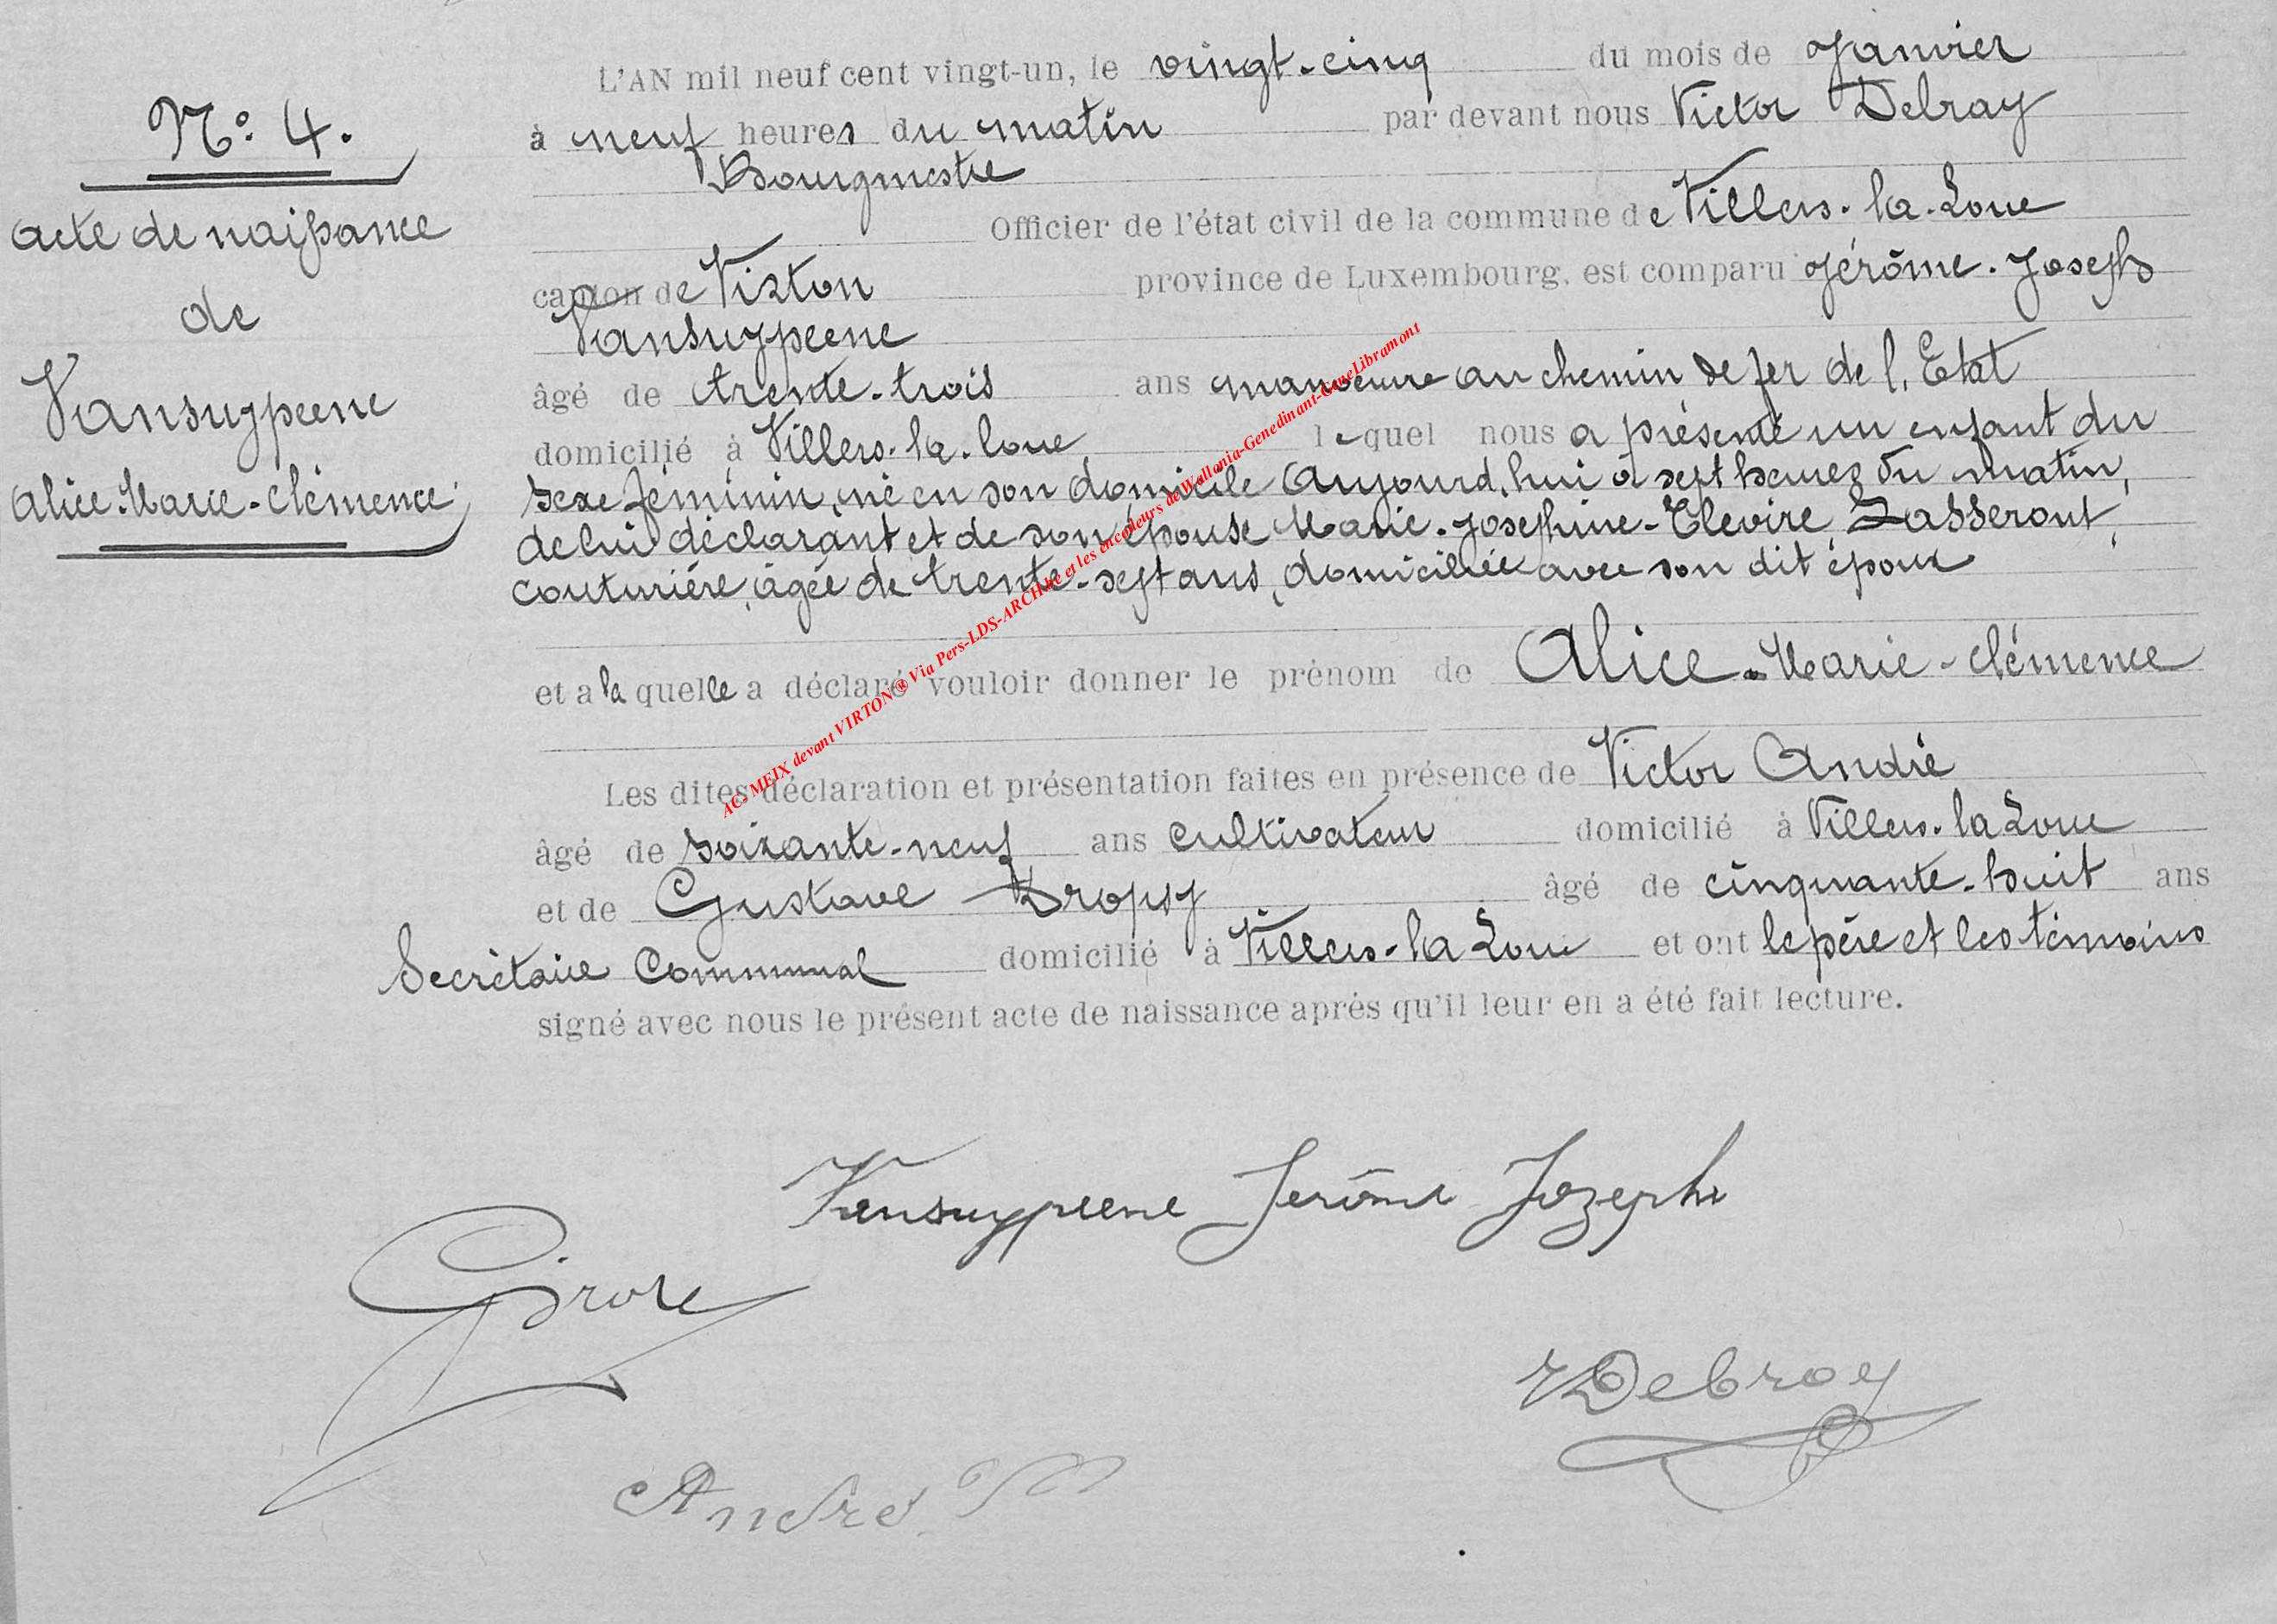 N.º 4.
Acte de naissance
de
Vansuypeene
Alice-Marie-Clémence
L'AN mil neuf cent vingt-un, le vingt-cinq du mois de Janvier
à neuf heures du matin par devant nous Victor Debray
Bourgmestre
Officier de l'état civil de la commune de Villers-la-Loue
canton de Virton province de Luxembourg, est comparu Jérôme-Joseph
Vansuypeene
âgé de trente-trois ans manoeuvre au chemin de fer de l'Etat
domicilié à Villers-la-loue lequel nous a présenté un enfant du
sexe féminin, né en son domicile Aujourd'hui à sept heures du matin,
de lui déclarant et de son épouse Marie-Josephine-Elevire Lasseront,
couturière, âgée de trente-sept ans, domiciliée avec son dit époux
et a la quelle a déclaré vouloir donner le prénom de Alice-Marie-Clémence
Les dites déclaration et présentation faites en présence de Victor André
âgé de soixante-neuf ans cultivateur domicilié à Villers-la Loue
et de Gustave Dropsy âgé de cinquante-huit ans
Secrétaire Communal domicilié à Villers-la Loue et ont le père et les témoins
signé avec nous le présent acte de naissance après qu'il leur en a été fait lecture.
AC. MEIX devant VIRTON® Via Pers-LDS-ARCHive et les encodeurs de Wallonia-Genedinant-GeneLibramont
Vansuypeene Jerôme Jozeph
VDebray
André